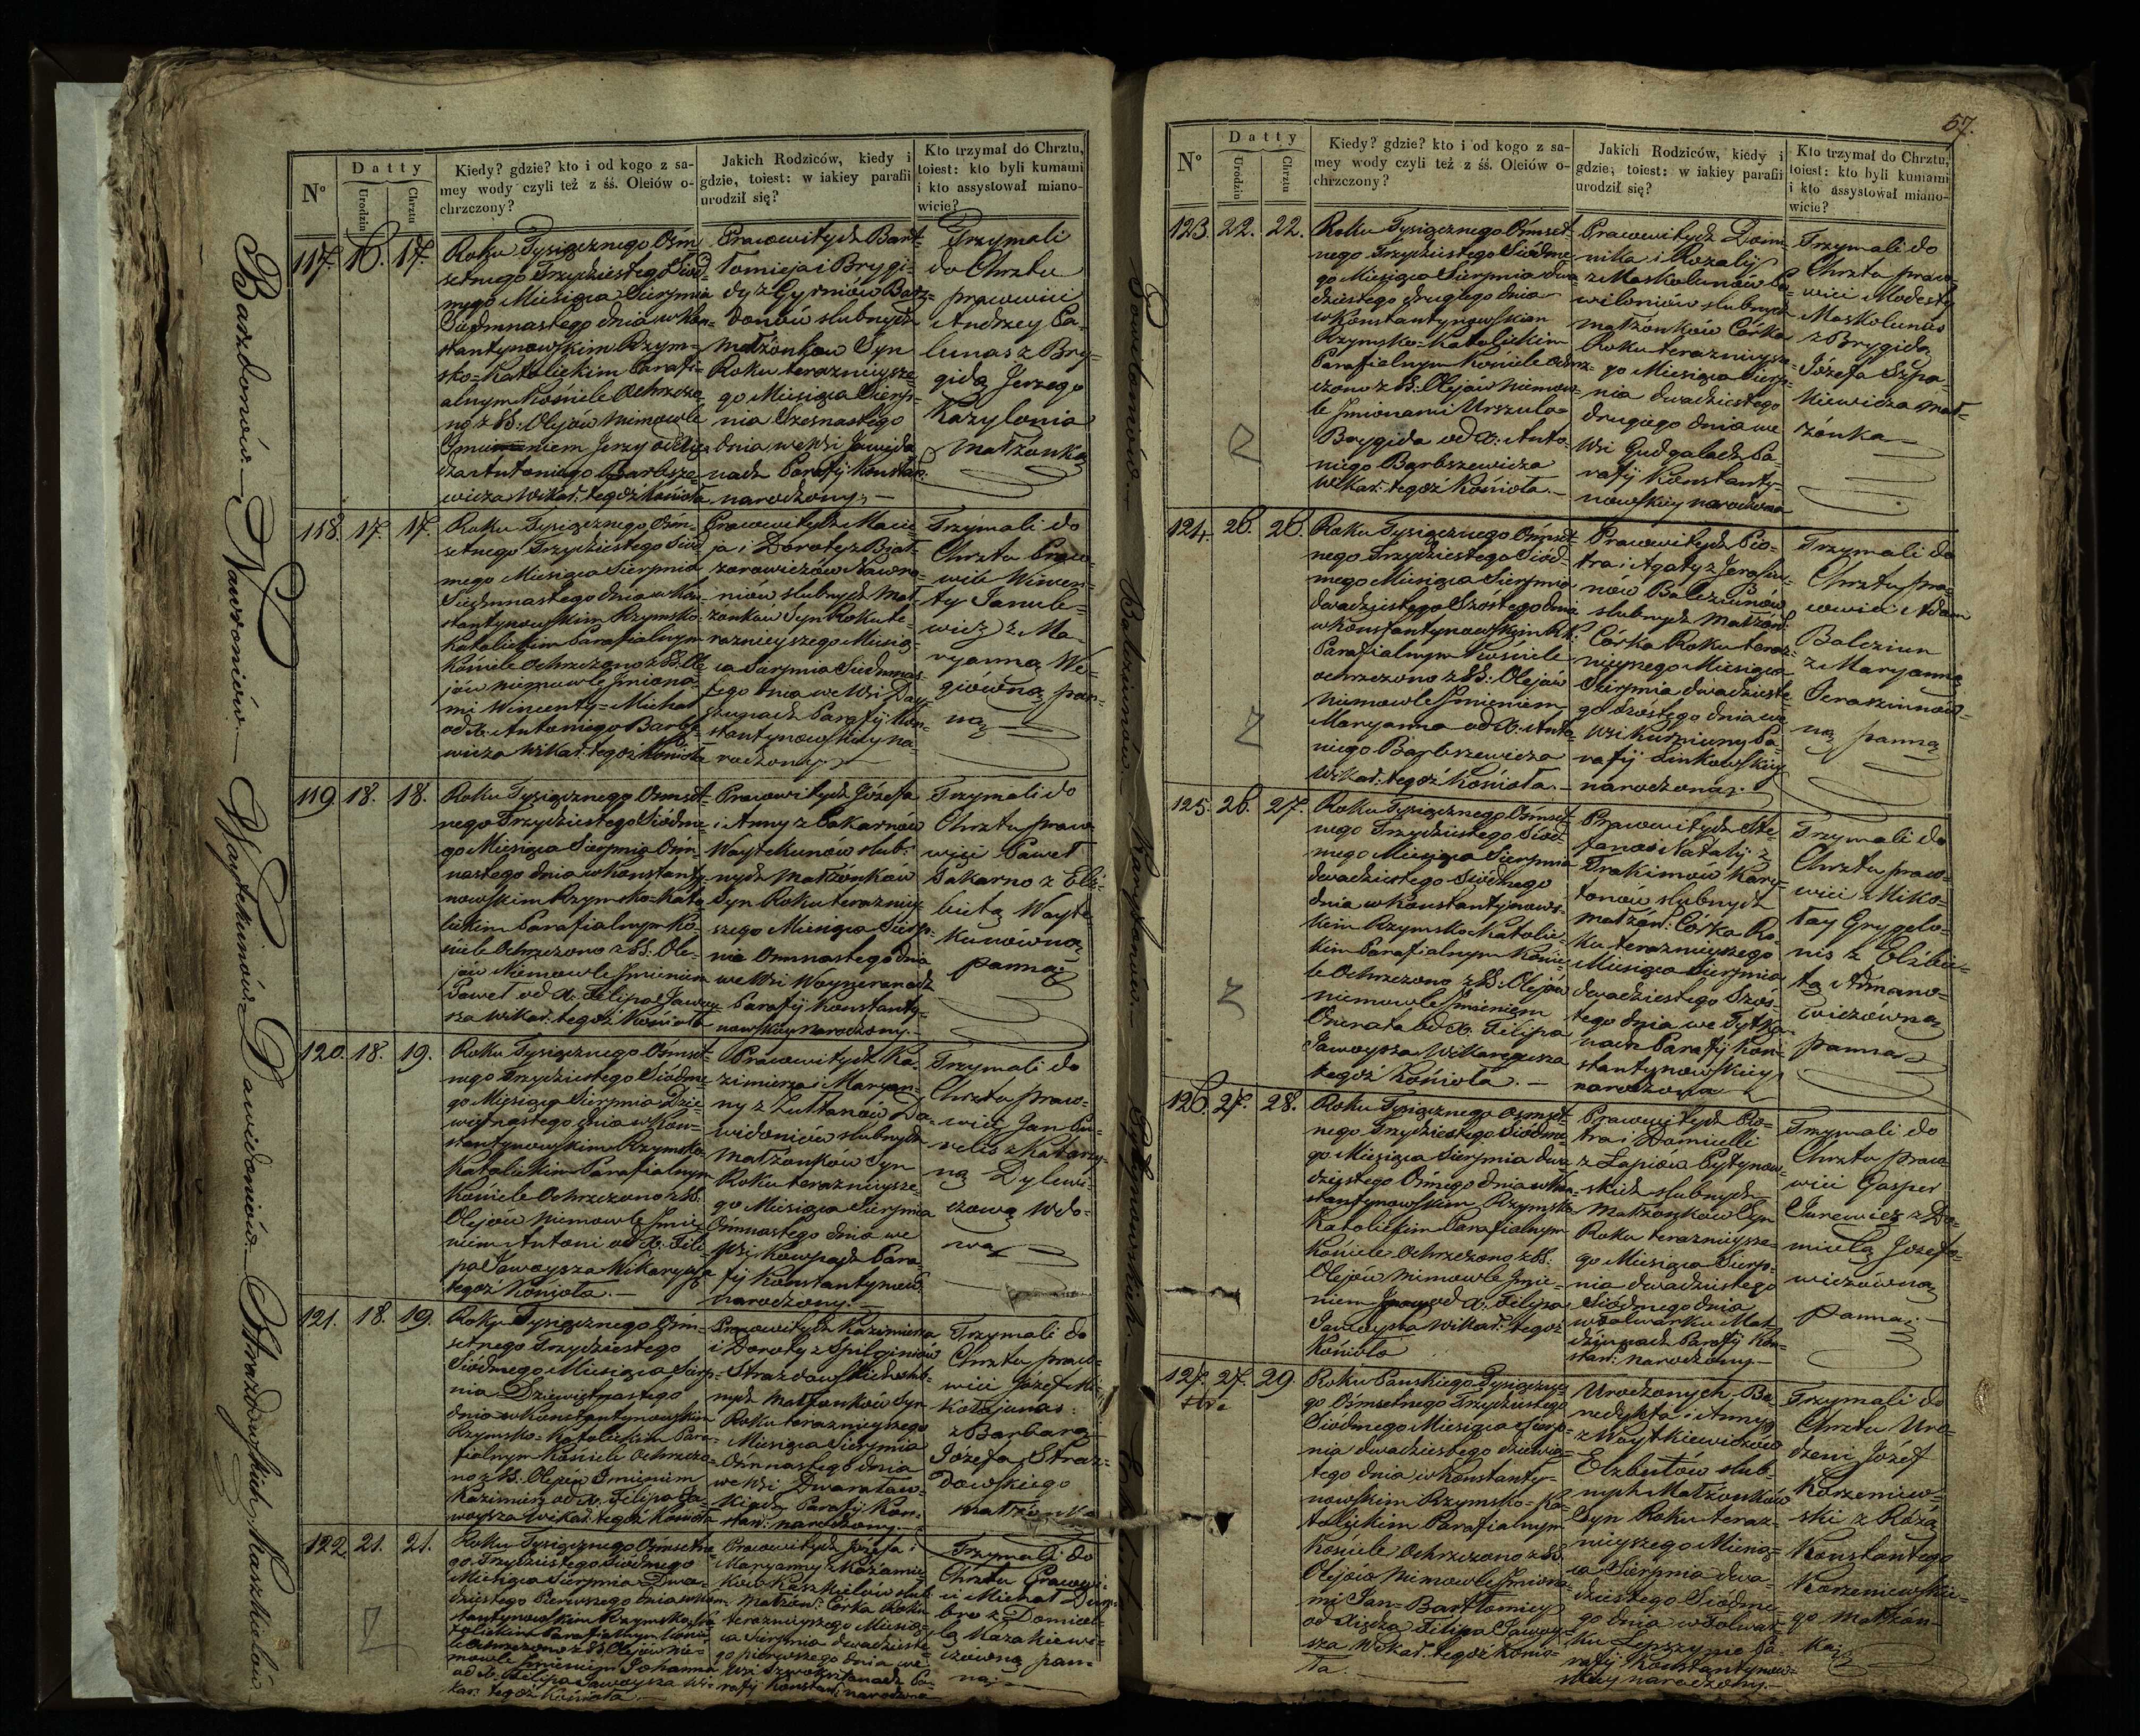 Barzdoniów — Nawroniów. — Waytekunów — Dawidoniów — Strazdowskich, Kaszkielów.
Nº
Datty
Urodzin
Chrztu
Kiedy? gdzie? kto i od kogo z sa-
mey wody czyli też z śś. Oleiów o-
chrzczony?
Jakich Rodziców, kiedy i
gdzie, toiest: w iakiey parafii
urodził się?
Kto trzymał do Chrztu,
toiest: kto byli kumami
i kto assystował miano-
wicie?
117. 16. 17.
Roku Tysiącznego Ośm-
setnego Trzydziestego Siód-
mego Miesiąca Sierpnia
Siedmnastego dnia w Kon-
stantynowskim Rzym-
sko-Katolickim Parafi-
alnym Kościele Ochrzczo-
no z SS: Olejów niemowle
Imieniem Jerzy od Xię-
dza Antoniego Barbsze-
wicza Wikar: tegoż Kościoła
Pracowitych Bart-
łomieja i Brygi-
dy z Gydniów Barz-
donów slubnych
Małżonków Syn
Roku teraznieysze-
go Miesiąca Sierp-
nia Szesnastego
dnia we Wsi Jawida
nach Parafij Konstan:
narodzony. —
Trzymali
do Chrztu
pracowici
Andrzey Pa-
lunas z Bry-
gidą Jerzego
Kazylonia
Małżonką
118. 17. 17.
Roku Tysiącznego Ośm-
setnego Trzydziestego Siód-
mego Miesiąca Sierpnia
Siedmnastego dnia w Kon-
stantynowskim Rzymsko-
Katolickim Parafialnym
Kościele Ochrzczono z SS: Ole-
jów niemowle Imiona-
mi Wincenty-Michał
od X. Antoniego Barbsze-
wicza Wikar: tegoż Kościoła
Pracowitych Macie-
ja i Doroty z Biał-
zarowiczów Nawro-
niów slubnych Mał-
żonków Syn Roku te-
raznieyszego Miesią-
ca Sierpnia Siedmnas-
tego dnia we Wsi Dau
szunach Parafij Kon-
stantynowskiey na-
rodzony. —
Trzymali do
Chrztu Praco-
wici Wincen-
ty Janule-
wicz z Ma-
ryanną We-
giówną pan-
ną
119. 18. 18.
Roku Tysiącznego Osmset-
nego Trzydziestego Siódme-
go Miesiąca Sierpnia Osm-
nastego dnia w Konstanty-
nowskim Rzymsko-Kato-
lickim Parafialnym Ko-
ściele Ochrzczono z SS: Ole-
jów Niemowle Imieniem
Paweł od X. Filipa Jawoy-
sza Wikar: tegoż Kościoła
Pracowitych Józefa
i Anny z Sakarnów
Waytekunow slub-
nych Małżonków
Syn Roku teraźniey-
szego Miesiąca Sierp-
nia Osmnastego dnia
we Wsi Woyneranach
Parafij Konstanty-
nowskiey narodzony. —
Trzymali do
Chrztu praco-
wici Paweł
Sakarno z Elż-
bietą Wayte-
kunówną
panną
120. 18. 19.
Roku Tysiącznego Ośmset-
nego Trzydziestego Siódme-
go Miesiąca Sierpnia Dzie-
więtnastego dnia w Kon-
stantynowskim Rzymsko-
Katolickim Parafialnym
Kościele Ochrzczono z SS:
Olejów niemowle Imie-
niem Antoni od X. Fili-
pa Jawoysza Wikaryusza
tegoż Kościoła. —
Pracowitych Ka-
zimierza i Maryan-
ny z Zułtanów Da-
widoniców slubnych
Małżonków Syn
Roku teraznieysze-
go Miesiąca Sierpnia
Osmnastego dnia we
Wsi Kowpach Para-
fij Konstantynow.
narodzony. —
Trzymali do
Chrztu praco-
wici Jan Pu-
relis z Katarzy-
ną Dylewi-
czową Wdo-
wą
121. 18. 19.
Roku Tysiącznego Ośm-
setnego Trzydziestego
Siódmego Miesiąca Sierp-
nia Dziewiętnastego
dnia w Konstantynowskim
Rzymsko-Katolickim Para-
fialnym Kościele Ochrzczo-
no z SS. Olejów Imieniem
Kazimierz od X. Filipa Ja-
woysza Wikar: tegoż Kościoła
Pracowitych Kazimierza
i Doroty z Spilginiów
Strazdowskich slub-
nych Małżonków Syn
Roku teraznieyszego
Miesiąca Sierpnia
Osmnastego dnia
we Wsi Dwaratow-
kiach Parafij Kon-
stan: narodzony. —
Trzymali do
Chrztu praco-
wici Józef Mi-
kołajunas
z Barbarą
Józefa Straz-
dowskiego
Małżonką
122. 21. 21.
Roku Tysiącznego Osmsetne-
go Trzydziestego Siódmego
Miesiąca Sierpnia Dwu-
dziestego Pierwszego dnia w Kon-
stantynowskim Rzymsko-Ka-
tolickim Parafialnym Koście-
le Ochrzczono z SS. Olejów nie-
mowle Imieniem Johanna
od X. Filipa Jawoysza Wi-
kar: tegoż Kościoła. —
Pracowitych Józefa i
Maryanny z Każamie-
ków Kaszkielów slub
Małżon: Córka Roku
teraznieyszego Miesią-
ca Sierpnia dwadzieste-
go pierwszego dnia we
Wsi Szwoksztanach Pa-
rafij Konstan: narodzona
Trzymali do
Chrztu Pracowi-
ci Michał Dum-
bro z Domice-
lą Kazakiewi-
czowną pan-
ną. —
57.
Powiłoniów — Balziunów — Karytonów — Pytynowskich. — Elzbutów.
Nº
Datty
Urodzin
Chrztu
Kiedy? gdzie? kto i od kogo z sa-
mey wody czyli też z śś. Oleiów o-
chrzczony?
Jakich Rodziców, kiedy i
gdzie, toiest: w iakiey parafii
urodził się?
Kto trzymał do Chrztu,
toiest: kto byli kumami
i kto assystował miano-
wicie?
123. 22. 22.
Roku Tysiącznego Ośmset-
nego Trzydziestego Siódme-
go Miesiąca Sierpnia dwu-
dziestego drugiego dnia
w Konstantynowskim
Rzymsko-Katolickim
Parafialnym Kościele Ochrz-
czono z SS: Olejów niemow-
le Imionami Urszula-
Brygida od X: Anto-
niego Barbszewicza
Wikar: tegoż Kościoła. —
Pracowitych Domi-
nika i Rozalij
z Maskolunów Po-
wiłoniów slubnych
małżonków Córka
Roku teraznieysze-
go Miesiąca Sierp-
nia dwadziestego
drugiego dnia we
Wsi Gudgalach Pa-
rafij Konstanty-
nowskiey narodzona
Trzymali do
Chrztu praco-
wici Modesty
Maskolunas
z Brygidą
Józefa Szpa-
kiewicza Mał-
żonka —
124. 26. 26.
Roku Tysiącznego Ośmset-
nego Trzydziestego Siód-
mego Miesiąca Sierpnia
dwadziestego Szóstego dnia
w Konstantynowskim R. K.
Parafialnym Kościele
ochrzczono z SS: Olejów
niemowle Imieniem
Maryanna od X. Anto-
niego Barbszewicza
Wikar: tegoż Kościoła. —
Pracowitych Pio-
tra i Agaty z Jerasiu-
nów Balziunów
slubnych małżon:
Córka Roku teraz-
nieyszego Miesiąca
Sierpnia dwadzieste-
go szostego dnia we
Wsi Kurzniuny Pa-
rafij Linkowskiey
narodzona. —
Trzymali do
Chrztu pra-
cowici Adam
Balcziun
z Maryanną
Jerasiunów-
ną panną
125. 26. 27.
Roku Tysiącznego Ośmset-
nego Trzydziestego Siód-
mego Miesiąca Sierpnia
dwadziestego Siódmego
dnia w Konstantynows-
kim Rzymsko Katolic-
kim Parafialnym Koście-
le Ochrzczono z SS: Olejów
niemowle Imieniem
Onerata od X. Filipa
Jawoysza Wikaryusza
tegoż Kościoła. —
Pracowitych Ste-
fana i Natalij z
Trakimow Kary-
tonów slubnych
małżon: Córka Ro-
ku teraznieyszego
Miesiąca Sierpnia
dwadziestego Szós-
tego dnia we Tytka-
nach Parafij Kon-
stantynowskiey
narodzona
Trzymali do
Chrztu praco-
wici Miko-
łay Grygelo-
nis z Elżbie-
tą Admano-
wiczówną
panna
126. 27. 28.
Roku Tysiącznego Osmset-
nego Trzydziestego Siódme-
go Miesiąca Sierpnia dwu-
dziestego Ósmego dnia w Kon-
stantynowskim Rzymsko-
Katolickim Parafialnym
Kościele Ochrzczono z SS.
Olejów niemowle Imie-
niem Jan od X. Filipa
Jawoysza Wikar: tegoż
Kościoła
Pracowitych Pio-
tra i Domicelli
z Łapiów Pytynow-
skich slubnych
Małżonków Syn
Roku teraznieysze-
go Miesiąca Sierp-
nia dwadziestego
Siódmego dnia
w Folwarku Mał-
dziunach Parafij Kon-
stan: narodzony. —
Trzymali do
Chrztu praco-
wici Gasper
Jurewicz z Do-
micelą Jozefo-
wiczówną
panna. —
127. 27. 29.
Roku Panskiego Tysiączne-
go Osmsetnego Trzydziestego
Siódmego Miesiąca Sierp-
nia dwadziestego dziewią-
tego dnia w Konstanty-
nowskim Rzymsko-Ka-
tolickim Parafialnym
Kościele Ochrzczono z SS.
Olejów niemowle Imiona-
mi Jan-Bartłomiey
od Xiędza Filipa Jawoy-
sza Wikar. tegoż Kościo-
ła. —
Urodzonych Be-
nedykta i Anny
z Woytkiewiczów
Elzbutów slub-
nych Małżonków
Syn Roku teraz-
nieyszego Miesią-
ca Sierpnia dwu-
dziestego Siódme-
go dnia w Folwar-
ku Lepszynie Pa-
rafij Konstantynow-
skiey narodzony. —
Trzymali do
Chrztu Uro-
dzeni Józef
Korzeniew-
ski z Rózą
Konstantego
Korzeniewskie-
go Małżon-
ką